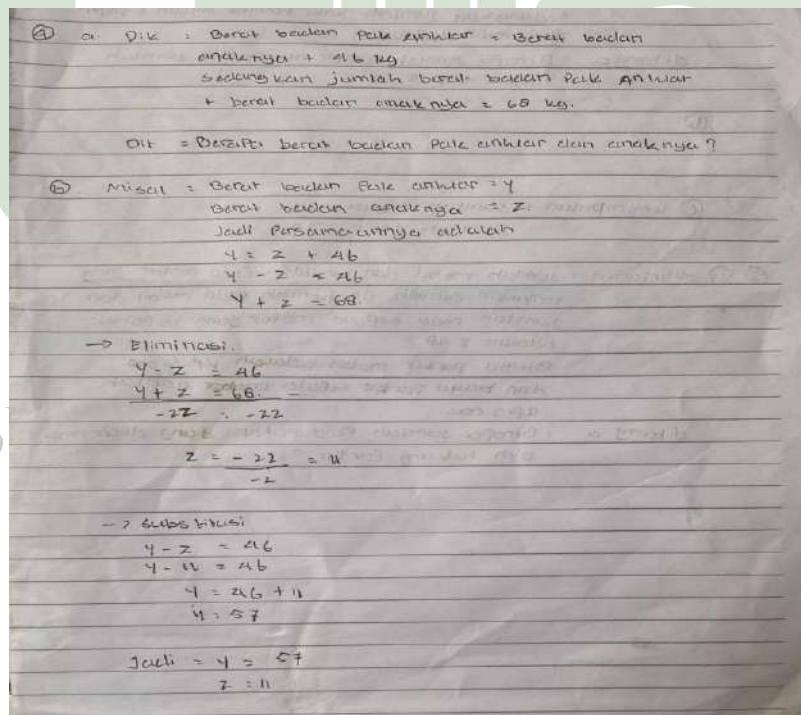 ④ a. Dik : Berat badan Pak Anwar = Berat badan
anaknya + 46 kg
Sedangkan jumlah berat badan Pak Anwar
+ berat badan anaknya = 68 kg.
Dit = Berapa berat badan Pak anwar dan anaknya?
ⓑ Misal : Berat badan Pak anwar = y
Berat badan anaknya = z.
Jadi Persamaannya adalah
y = z + 46
y - z = 46
y + z = 68.
→ Eliminasi.
y - z = 46
y + z = 68. -
-2z = -22
z = -22 = 11
-2
→ Substitusi
y - z = 46
y - 11 = 46
y = 46 + 11
y = 57
Jadi = y = 57
z = 11